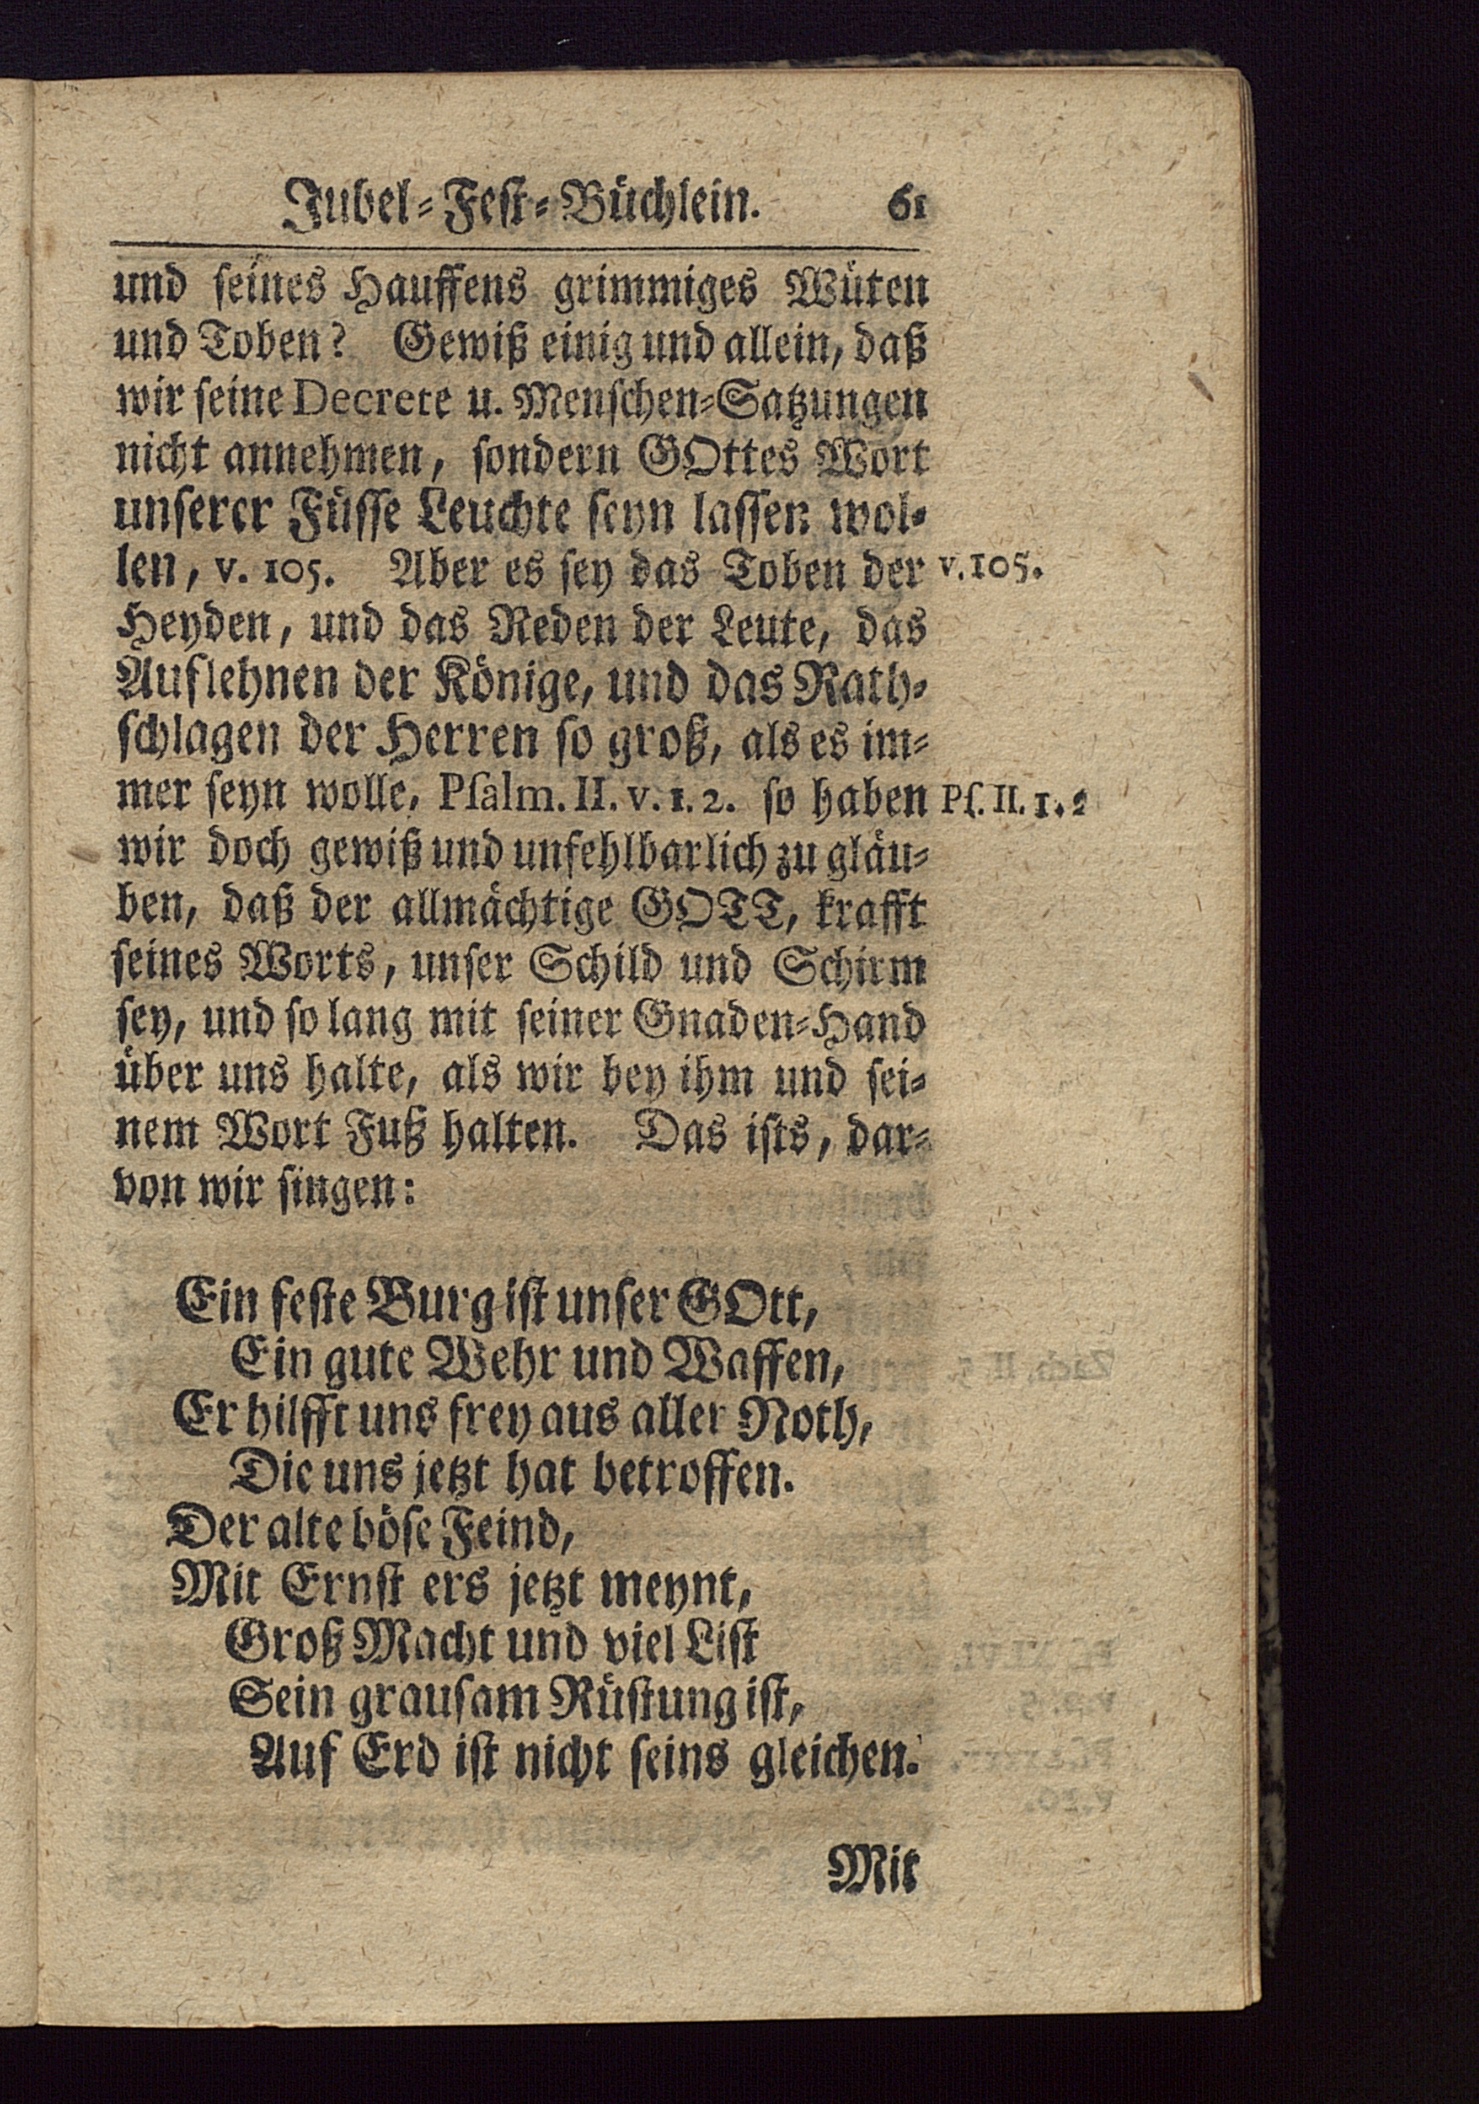 Jubel-Fest-Büchlein. 61
und seines Hauffens grimmiges Wüten
und Toben? Gewiß einig und allein, daß
wir seine Decrete u. Menschen-Satzungen
nicht annehmen, sondern GOttes Wort
unserer Füsse Leuchte seyn lassen wol-
len, v. 105. Aber es sey das Toben der v. 105.
Heyden, und das Reden der Leute, das
Auflehnen der Könige, und das Rath-
schlagen der Herren so groß, als es im-
mer seyn wolle, Psalm. II. v. 1. 2. so haben Ps. II. 1. 2
wir doch gewiß und unfehlbarlich zu gläu-
ben, daß der allmächtige GOTT, krafft
seines Worts, unser Schild und Schirm
sey, und so lang mit seiner Gnaden-Hand
über uns halte, als wir bey ihm und sei-
nem Wort Fuß halten. Das ists, dar-
von wir singen:
Ein feste Burg ist unser GOtt,
Ein gute Wehr und Waffen,
Er hilfft uns frey aus aller Noth,
Die uns jetzt hat betroffen.
Der alte böse Feind,
Mit Ernst ers jetzt meynt,
Groß Macht und viel List
Sein grausam Rüstung ist,
Auf Erd ist nicht seins gleichen.
Mit